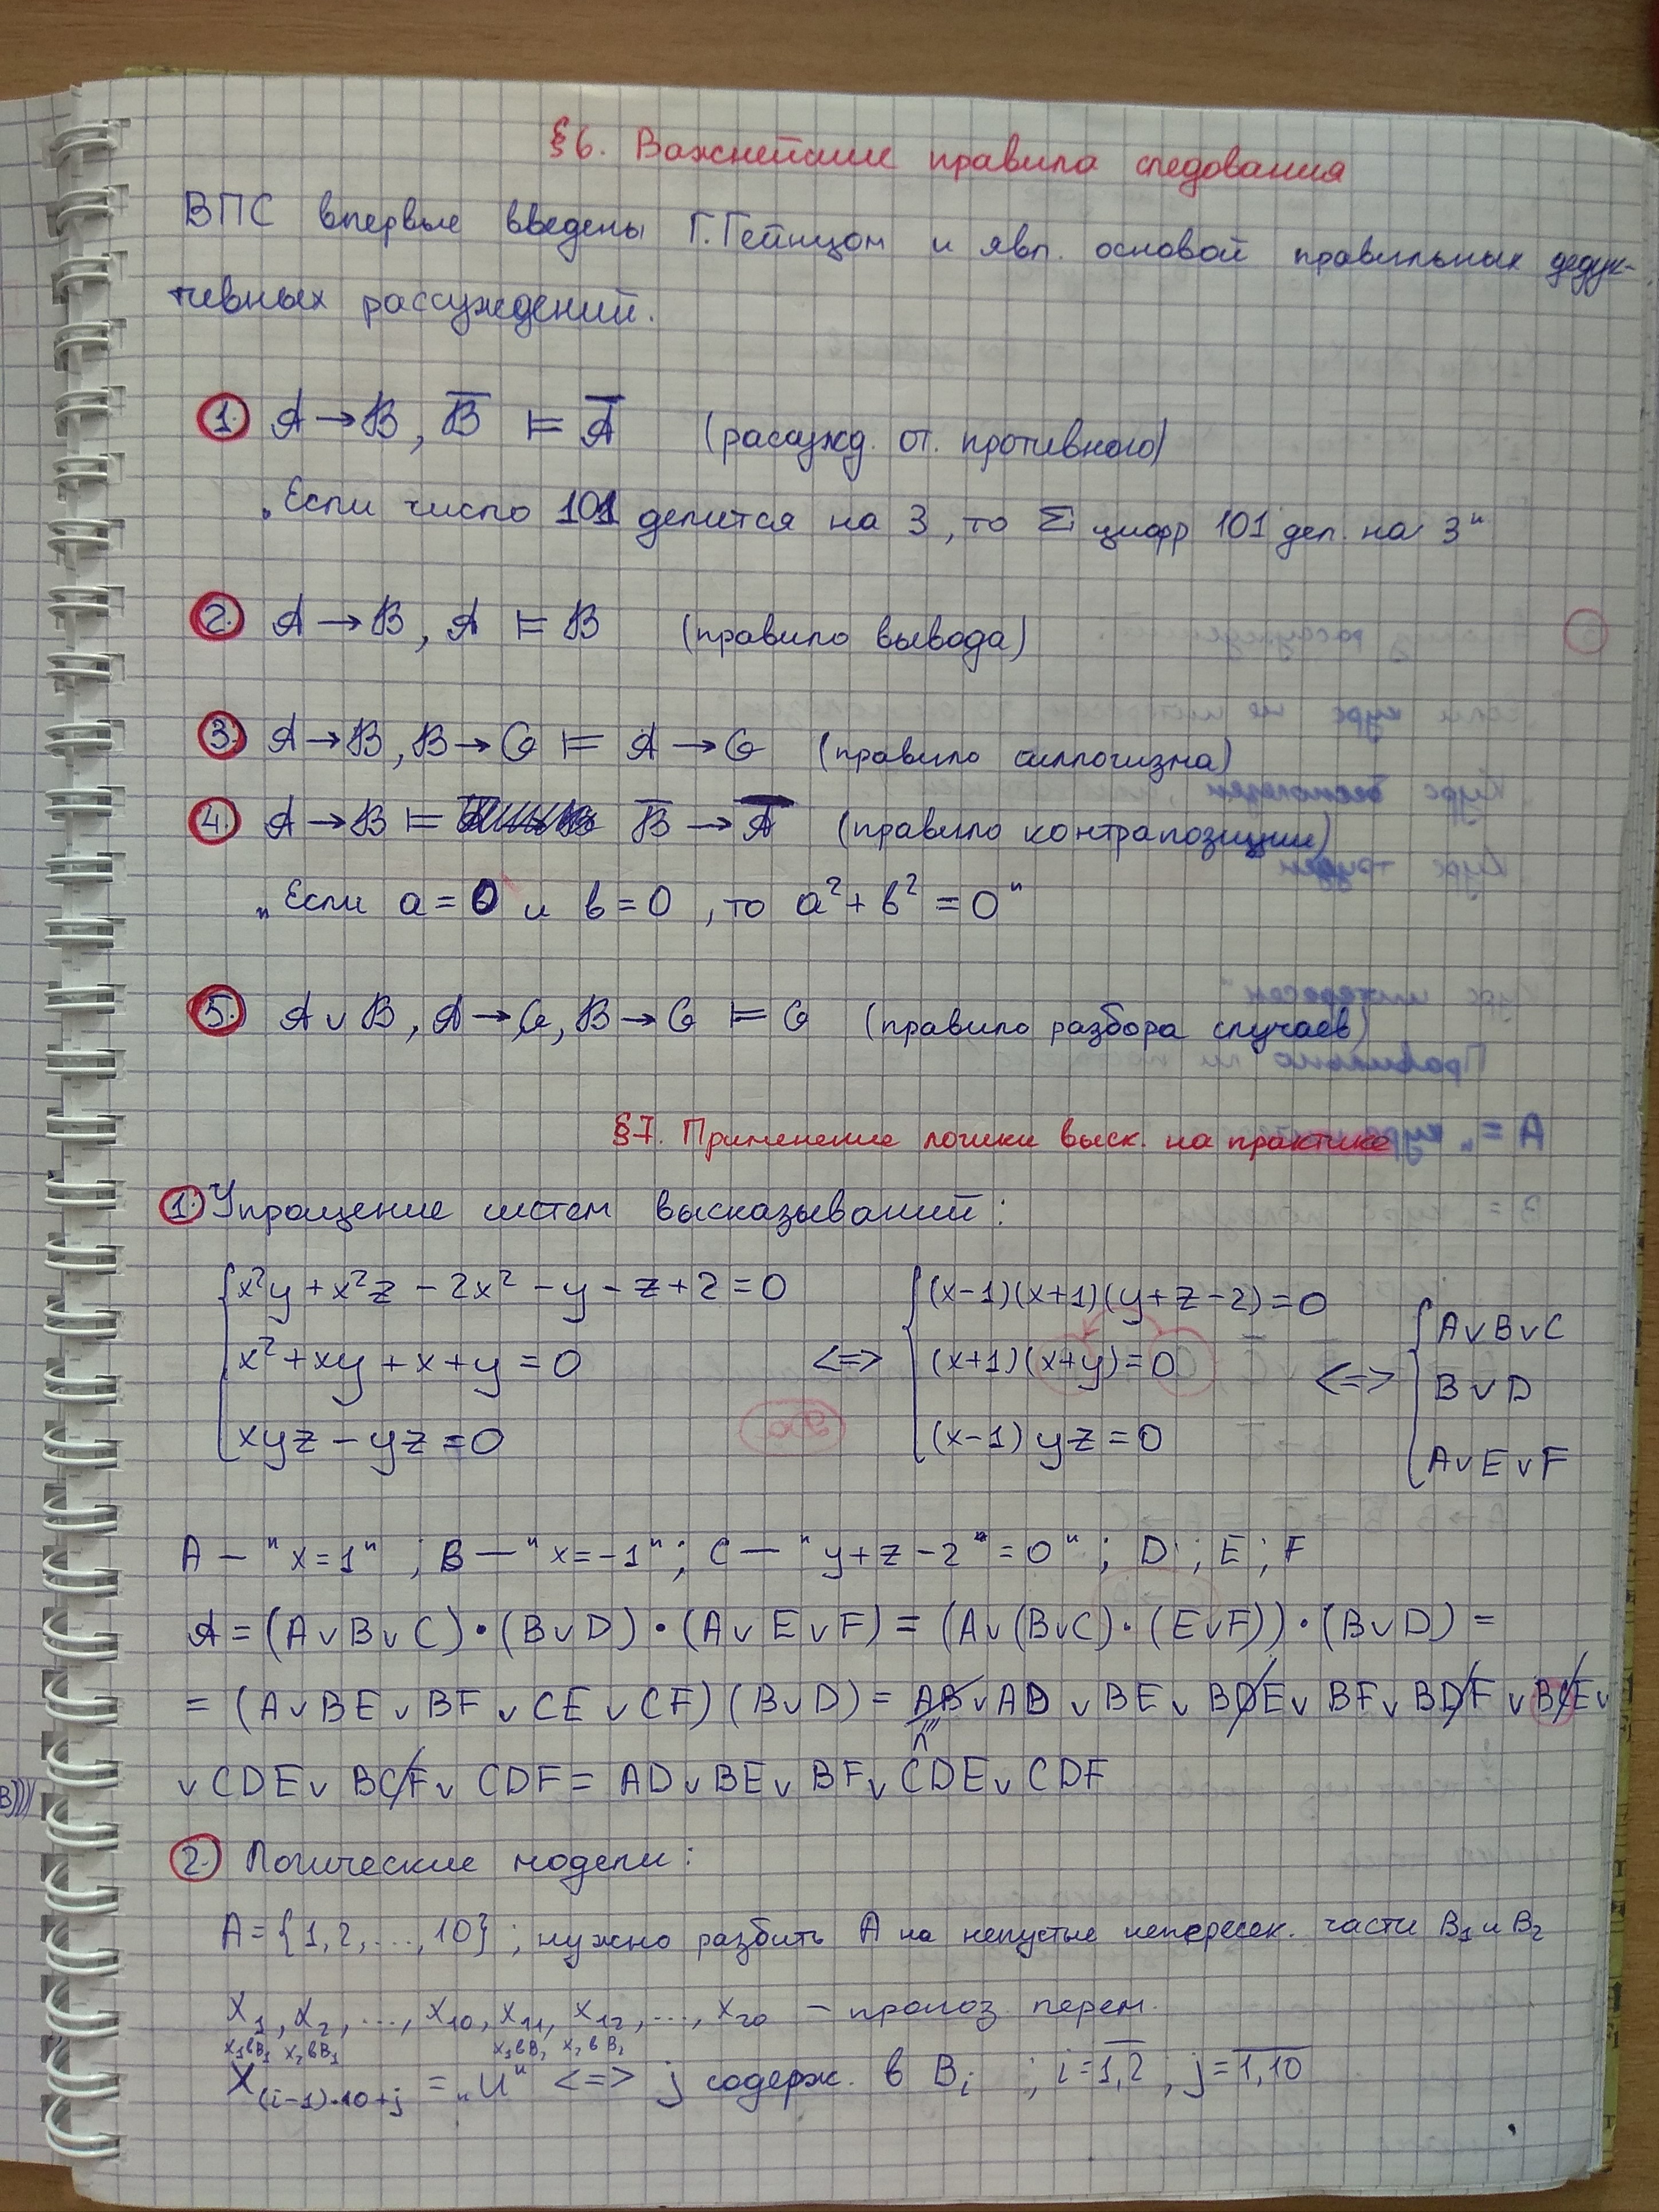 §6. Важнейшие правила следования
ВПС впервые введены Г. Гейнцом и явл. основой правильных дедук-
тивных рассуждений.
1. A → B, B̅ ⊨ A̅ (рассужд. от. противного)
„Если число 101 делится на 3, то Σ цифр 101 дел. на 3"
2. A → B, A ⊨ B (правило вывода)
3. A → B, B → G ⊨ A → G (правило силлогизма)
4. A → B ⊨ B̅ → A̅ (правило контрапозиции)
„Если a = 0 и b = 0, то a² + b² = 0"
5. A ∨ B, A → G, B → G ⊨ G (правило разбора случаев)
§7. Применение логики выск. на практике
1. Упрощение систем высказываний:
x²y + x²z − 2x² − y − z + 2 = 0 (x−1)(x+1)(y+z−2) = 0 A∨B∨C
x² + xy + x + y = 0 <=> (x+1)(x+y) = 0 <=> B∨D
xyz − yz = 0 (x−1)yz = 0 A∨E∨F
A — "x=1"; B — "x=−1"; C — "y+z−2=0"; D; E; F
A = (A∨B∨C)•(B∨D)•(A∨E∨F) = (A∨(B∨C)•(E∨F))•(B∨D) =
= (A∨BE∨BF∨CE∨CF)(B∨D) = AB∨AD∨BE∨BDE∨BF∨BDF∨BCE∨
Л
∨CDE∨BCF∨CDF = AD∨BE∨BF∨CDE∨CDF
2. Логические модели:
A = {1, 2, ..., 10}; нужно разбить A на непустые непересек. части B₁ и B₂
x₁, x₂, ..., x₁₀, x₁₁, x₁₂, ..., x₂₀ – пропоз. перем.
x₁ в B₁ x₂ в B₁ x₁ в B₂ x₂ в B₂
X₍ᵢ₋₁₎.₁₀₊ⱼ = „И" <=> j содерж. в Bᵢ; i = 1,2; j = 1,10